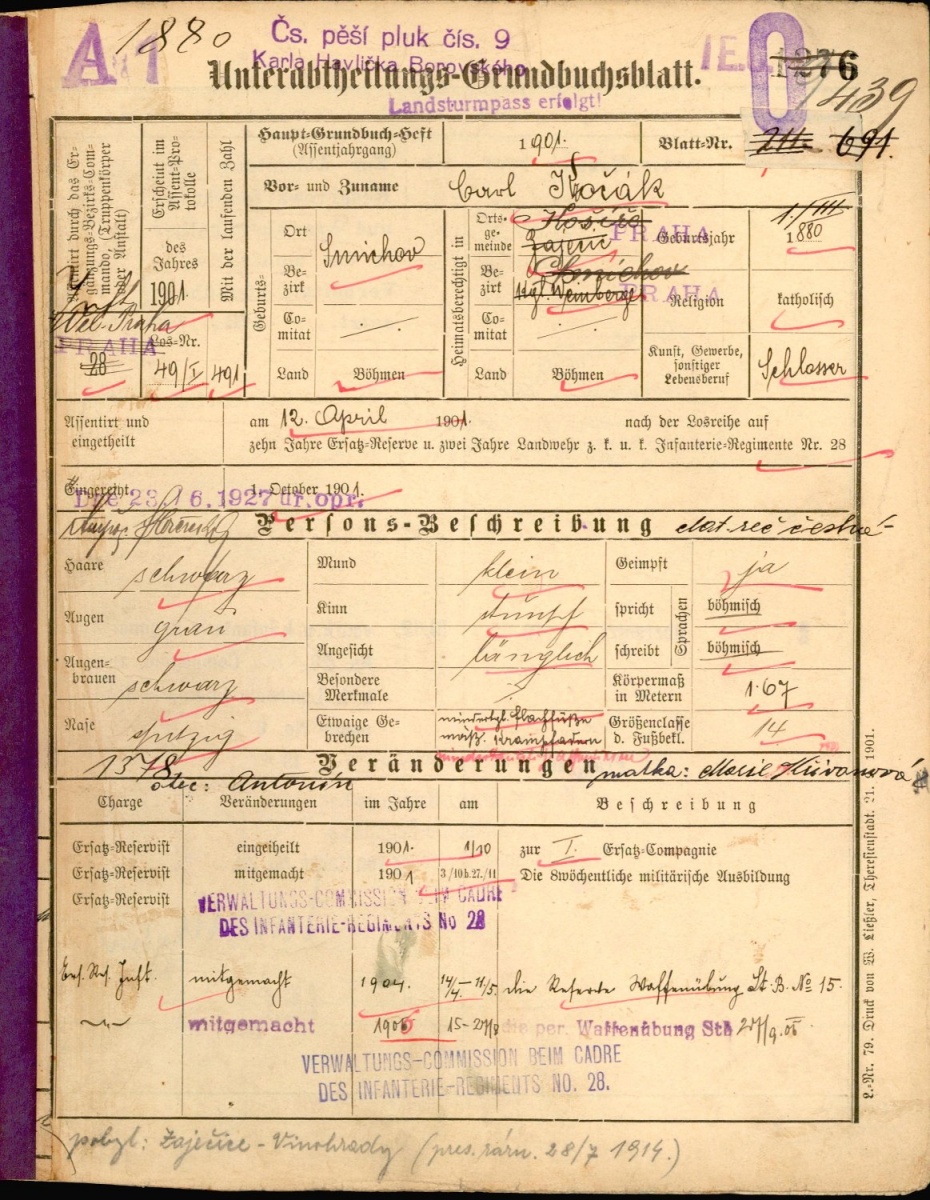 A 1 1880
Čs. pěší pluk čís. 9
Karla Havlíčka Borovského
Unterabtheilungs-Grundbuchsblatt.
1276
1439
Landsturmpass erfolgt!
Haupt-Grundbuch-Heft
(Assentjahrgang)
1901.
Blatt-Nr.
691.
Vor- und Zuname
Carl Kočák
Assentirt durch das Er-
gänzungs-Bezirks-Com-
mando, (Truppenkörper
oder Anstalt)
PRAHA
28
Erscheint im
Assent-Pro-
tokolle
des
Jahres
1901
Los-Nr.
49/I
Mit der laufenden Zahl
491
Geburts-
Ort
Smichov
Be-
zirk
Co-
mitat
Land
Böhmen
Heimatsberechtigt in
Orts-
ge-
meinde
Košíře
PRAHA
Be-
zirk
Smichov
Kgl. Weinberg
PRAHA
Co-
mitat
Land
Böhmen
Geburtsjahr
1./III
1880
Religion
katholisch
Kunst, Gewerbe,
sonstiger
Lebensberuf
Schlosser
Assentirt und
eingetheilt
am 12. April 1901. nach der Losreihe auf
zehn Jahre Ersatz-Reserve u. zwei Jahre Landwehr z. k. u. k. Infanterie-Regimente Nr. 28
Eingereiht
1. October 1901.
Dne 23/6.1927 úř. opr.
Persons-Beschreibung
Haare
schwarz
Augen
grau
Augen-
brauen
schwarz
Nase
spitzig
Mund
klein
Kinn
stumpf
Angesicht
länglich
Besondere
Merkmale
Etwaige Ge-
brechen
Flachfüße
mäß. Krampfadern
Geimpft
ja
spricht
Sprachen
böhmisch
schreibt
böhmisch
Körpermaß
in Metern
1·67
Größenclasse
d. Fußbekl.
14
1378
Veränderungen
otec: Antonín
matka: Marie Křivanová
Charge
Veränderungen
im Jahre
am
Beschreibung
Ersatz-Reservist eingetheilt 1901. 1/10 zur I. Ersatz-Compagnie
Ersatz-Reservist mitgemacht 1901 3/10 b. 27./11 Die 8wöchentliche militärische Ausbildung
Ersatz-Reservist
VERWALTUNGS-COMMISSION BEIM CADRE
DES INFANTERIE-REGIMENTS No 28
Ers. Res. Inft. mitgemacht 1904. 14/4-11/5. die Reserve Waffenübung St. B. No 15.
mitgemacht 1905 15-27/8 die per. Waffenübung Stb 27/9.05
VERWALTUNGS-COMMISSION BEIM CADRE
DES INFANTERIE-REGIMENTS NO. 28.
L.-Nr. 79. Druck von W. Ließler, Theresienstadt. 21. 1901.
pobyt: Zaječice - Vinohrady (pres. rárn. 28/7 1914.)